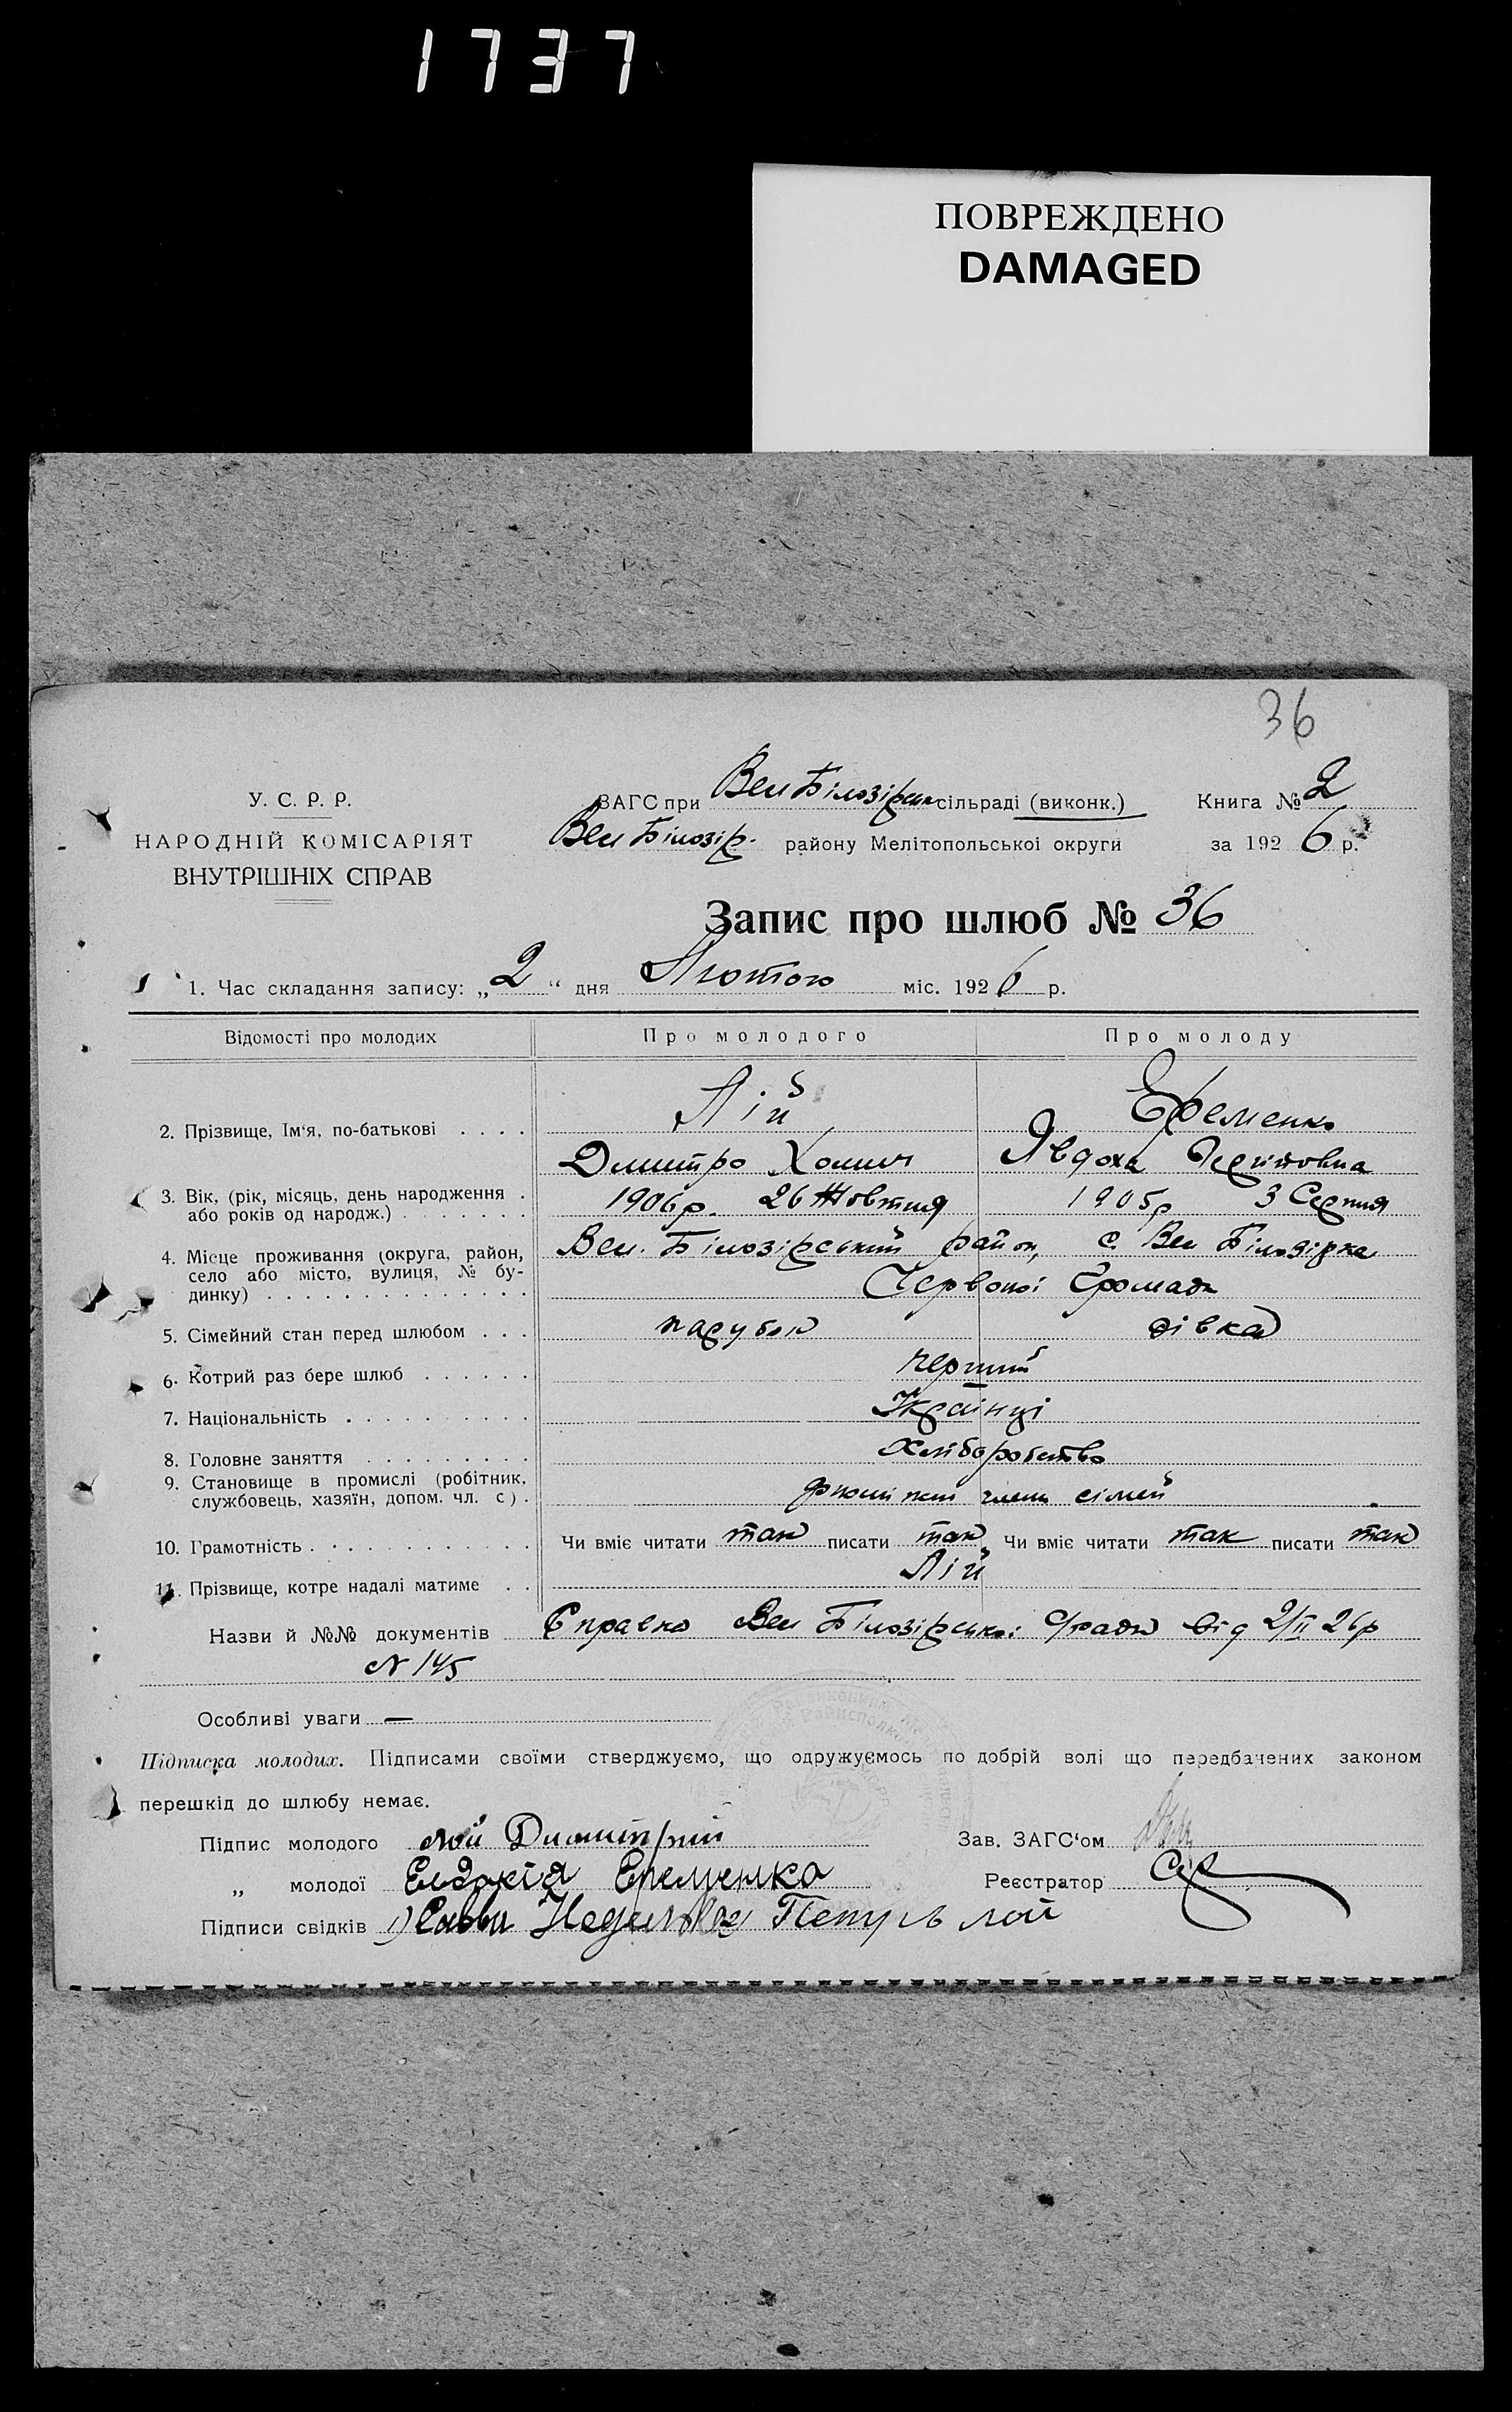 1737
ПОВРЕЖДЕНО
DAMAGED
36
У. С. Р. Р.
НАРОДНІЙ КОМІСАРІЯТ
ВНУТРІШНІХ СПРАВ
ЗАГС при Вел Білозірськ сільраді (виконк.) Книга № 2
Вел Білозір. району Мелітопольської округи за 1926 р.
Запис про шлюб № 36
1. Час складання запису: „2“ дня Лютого міс. 1926 р.
Відомості про молодих Про молодого Про молоду
2. Прізвище, Ім‘я, по-батькові . . . . Лій Єременко
Дмитро Хомич Явдоха
3. Вік, (рік, місяць, день народження . 1906р. 26 Жовтня 1905р 3 Серпня
або років од народж.) . . . . . . . .
4. Місце проживання (округа, район, Вел. Білозірський район, с. Вел Білозірка
село або місто, вулиця, № бу-
динку) . . . . . . . . . . . . . . Червоної Громади
5. Сімейний стан перед шлюбом . . . парубок дівка
6. Котрий раз бере шлюб . . . . . . перший
7. Національність . . . . . . . . . . Українці
8. Головне заняття . . . . . . . . . Хліборобство
9. Становище в промислі (робітник,
службовець, хазяїн, допом. чл. с) . члени сімей
10. Грамотність . . . . . . . . . . . . Чи вміє читати так писати так Чи вміє читати так писати так
11. Прізвище, котре надалі матиме . . Лій
Назви й №№ документів Справка Вел Білозірської с/ради від 2/II 26р
N 145
Особливі уваги —
Підписка молодих. Підписами своїми стверджуємо, що одружуємось по добрій волі що передбачених законом
перешкід до шлюбу немає.
Підпис молодого Лій Димитрий Зав. ЗАГС‘ом
„ молодої Евдокія Еременка Реєстратор
Підписи свідків 1) Савва 2) Пету лой